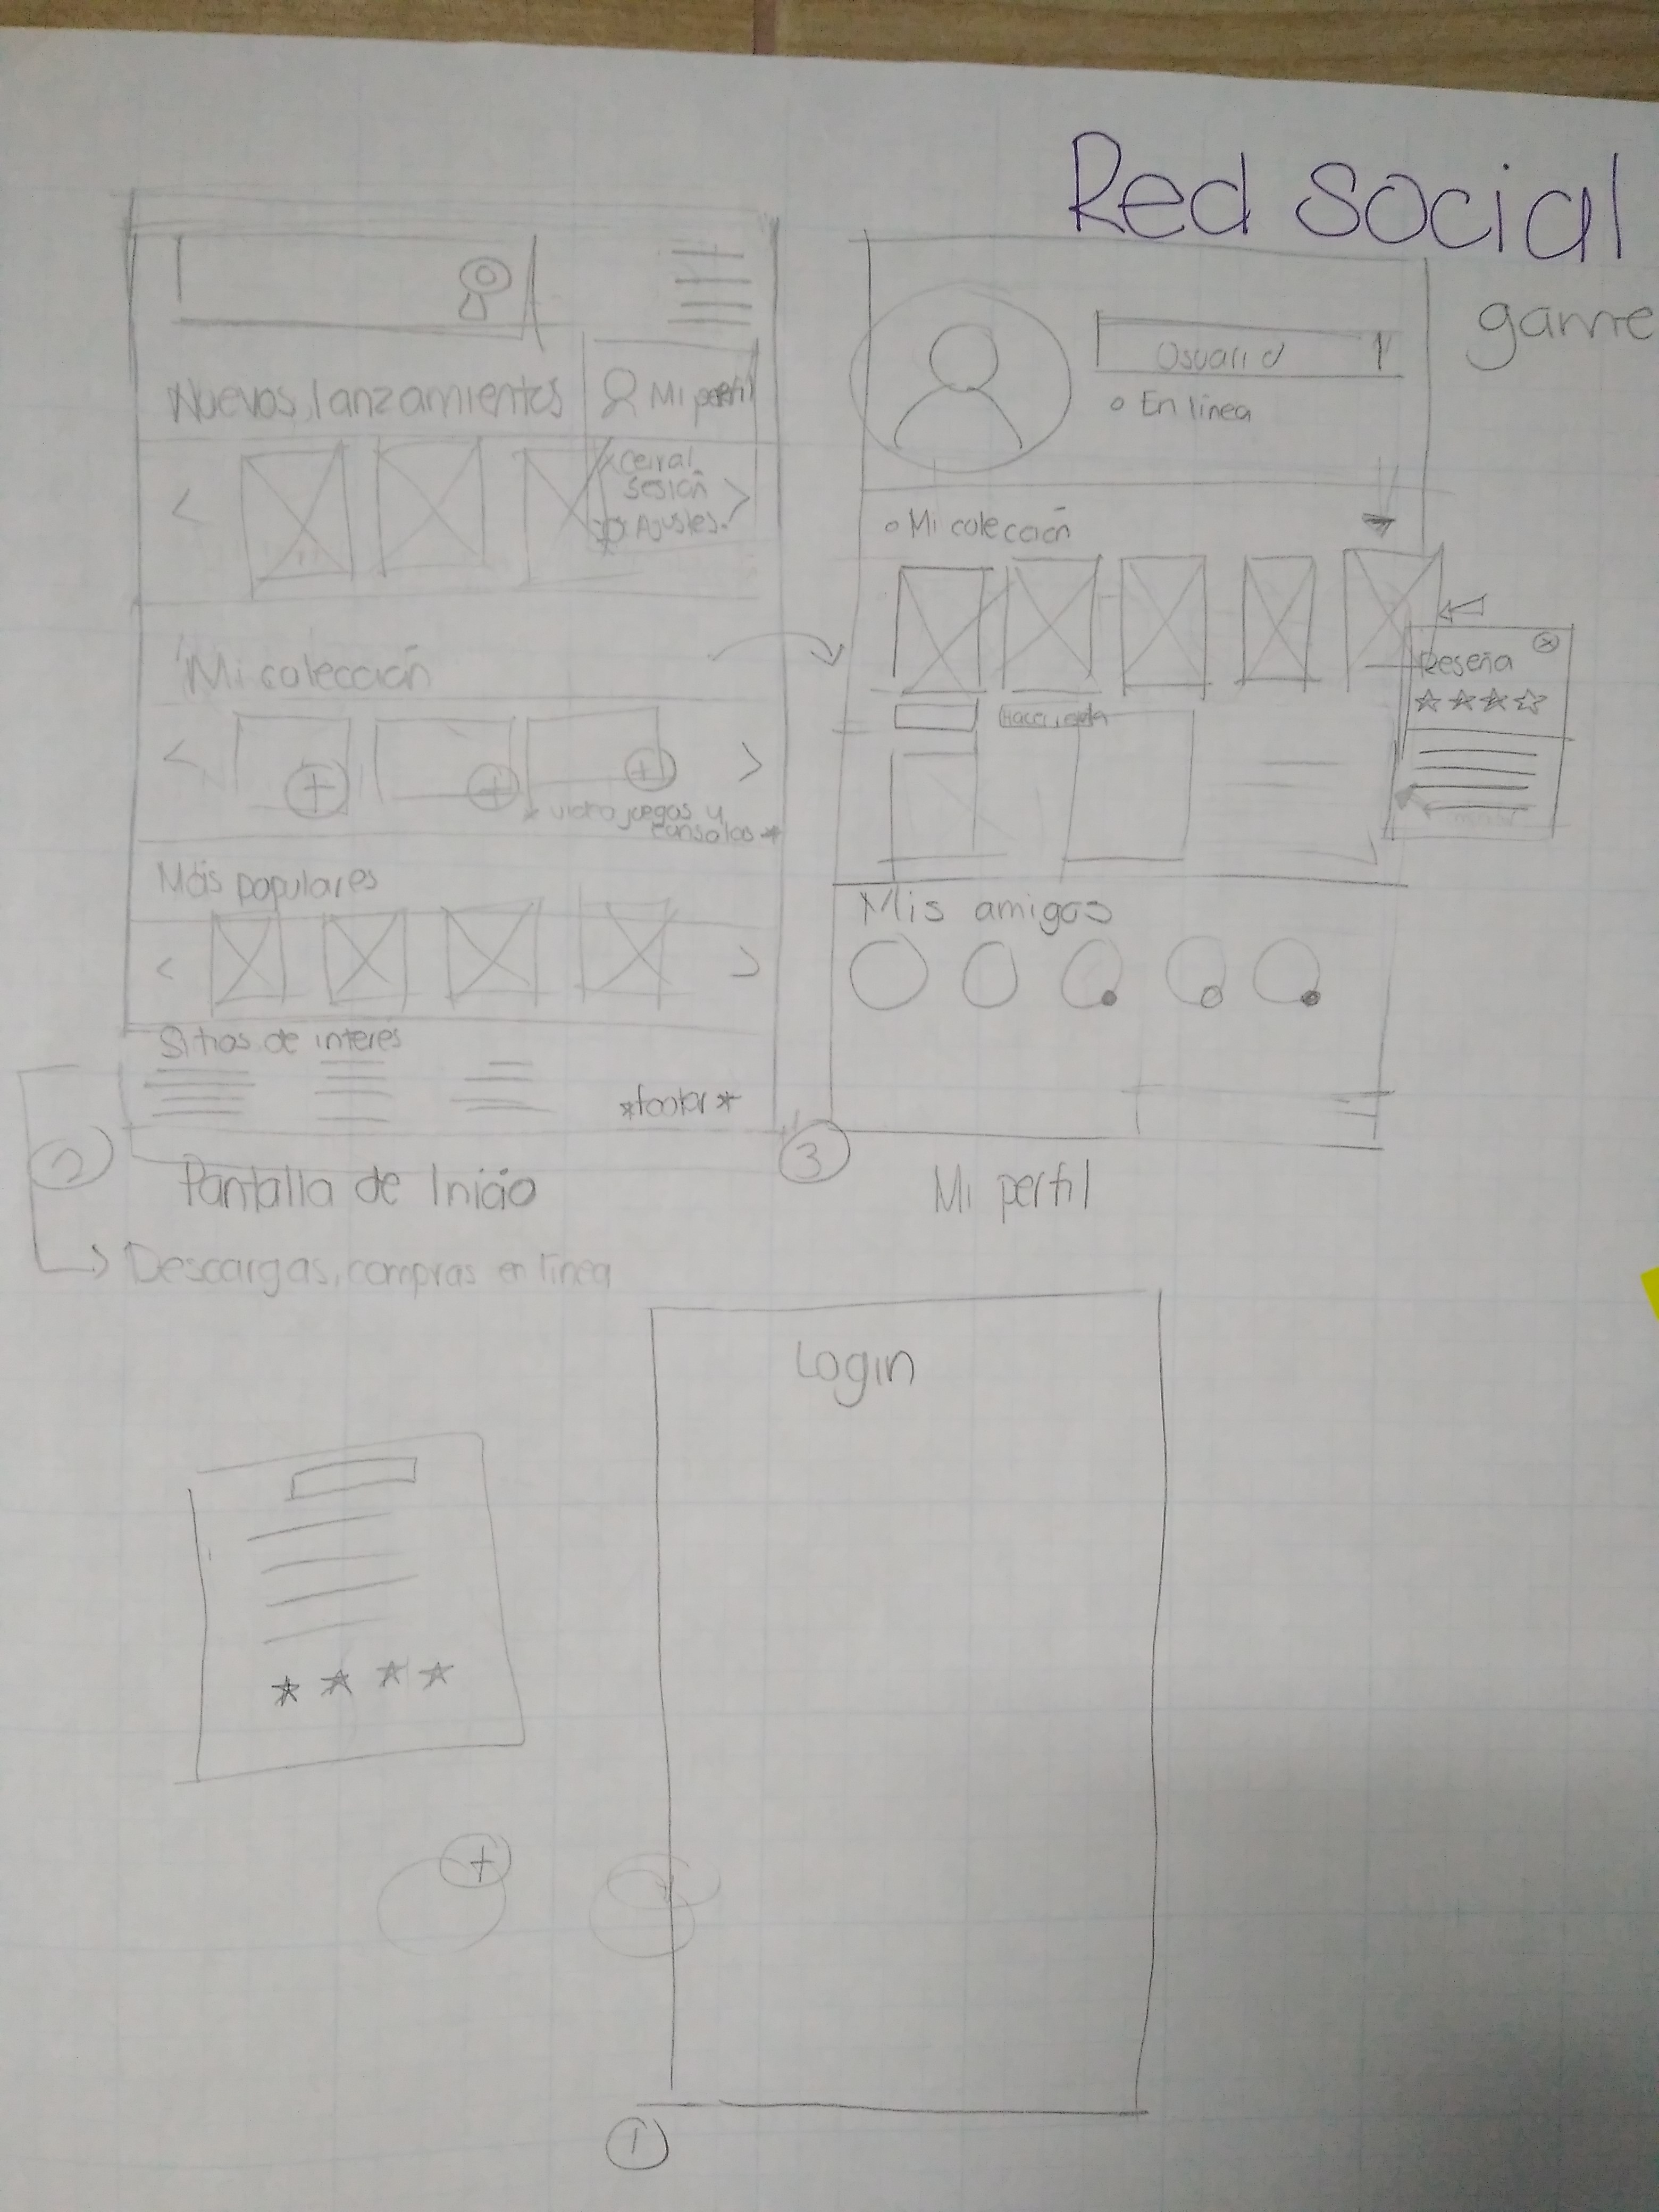 Red social
game
Nuevos lanzamientos
Mi perfil
Cerrar
sesión
Ajustes.
Mi colección
video juegos y
consolas *
Más populares
Sitios de interés
*footer*
2
Pantalla de Inicio
Descargas, compras en línea
Usuario
En línea
Mi colección
Reseña
Hacer
Mis amigos
3
Mi perfil
Login
1